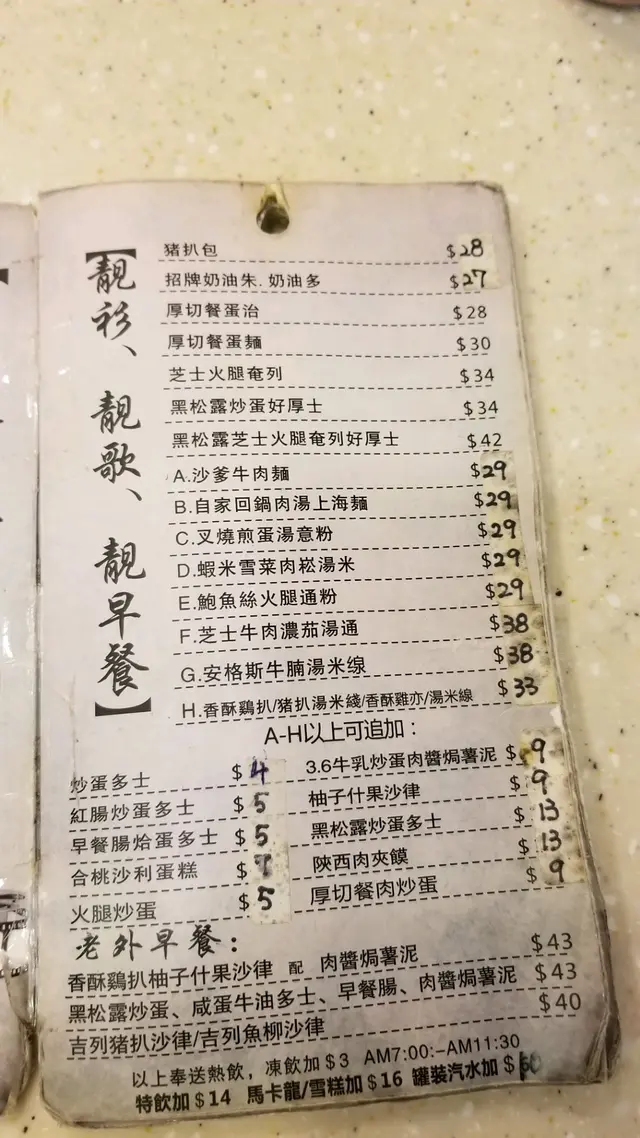 【靚衫、靚歌、靚早餐】
猪扒包 $28
招牌奶油朱.奶油多 $27
厚切餐蛋治 $28
厚切餐蛋麵 $30
芝士火腿奄列 $34
黑松露炒蛋好厚士 $34
黑松露芝士火腿奄列好厚士 $42
A.沙爹牛肉麵 $29
B.自家回鍋肉湯上海麵 $29
C.叉燒煎蛋湯意粉 $29
D.蝦米雪菜肉崧湯米 $29
E.鮑魚絲火腿通粉 $29
F.芝士牛肉濃茄湯通 $38
G.安格斯牛腩湯米缐 $38
H.香酥鷄扒/猪扒湯米綫/香酥雞亦/湯米線 $33
A-H以上可追加：
炒蛋多士 $4
紅腸炒蛋多士 $5
早餐腸烚蛋多士 $5
合桃沙利蛋糕 $
火腿炒蛋 $5
3.6牛乳炒蛋肉醬焗薯泥 $9
柚子什果沙律 $9
黑松露炒蛋多士 $13
陝西肉夾饃 $13
厚切餐肉炒蛋 $9
老外早餐：
香酥鷄扒柚子什果沙律 配 肉醬焗薯泥 $43
黑松露炒蛋、咸蛋牛油多士、早餐腸、肉醬焗薯泥 $43
吉列猪扒沙律/吉列魚柳沙律 $40
以上奉送熱飲，凍飲加$3 AM7:00:–AM11:30
特飲加$14 馬卡龍/雪糕加$16 罐裝汽水加$